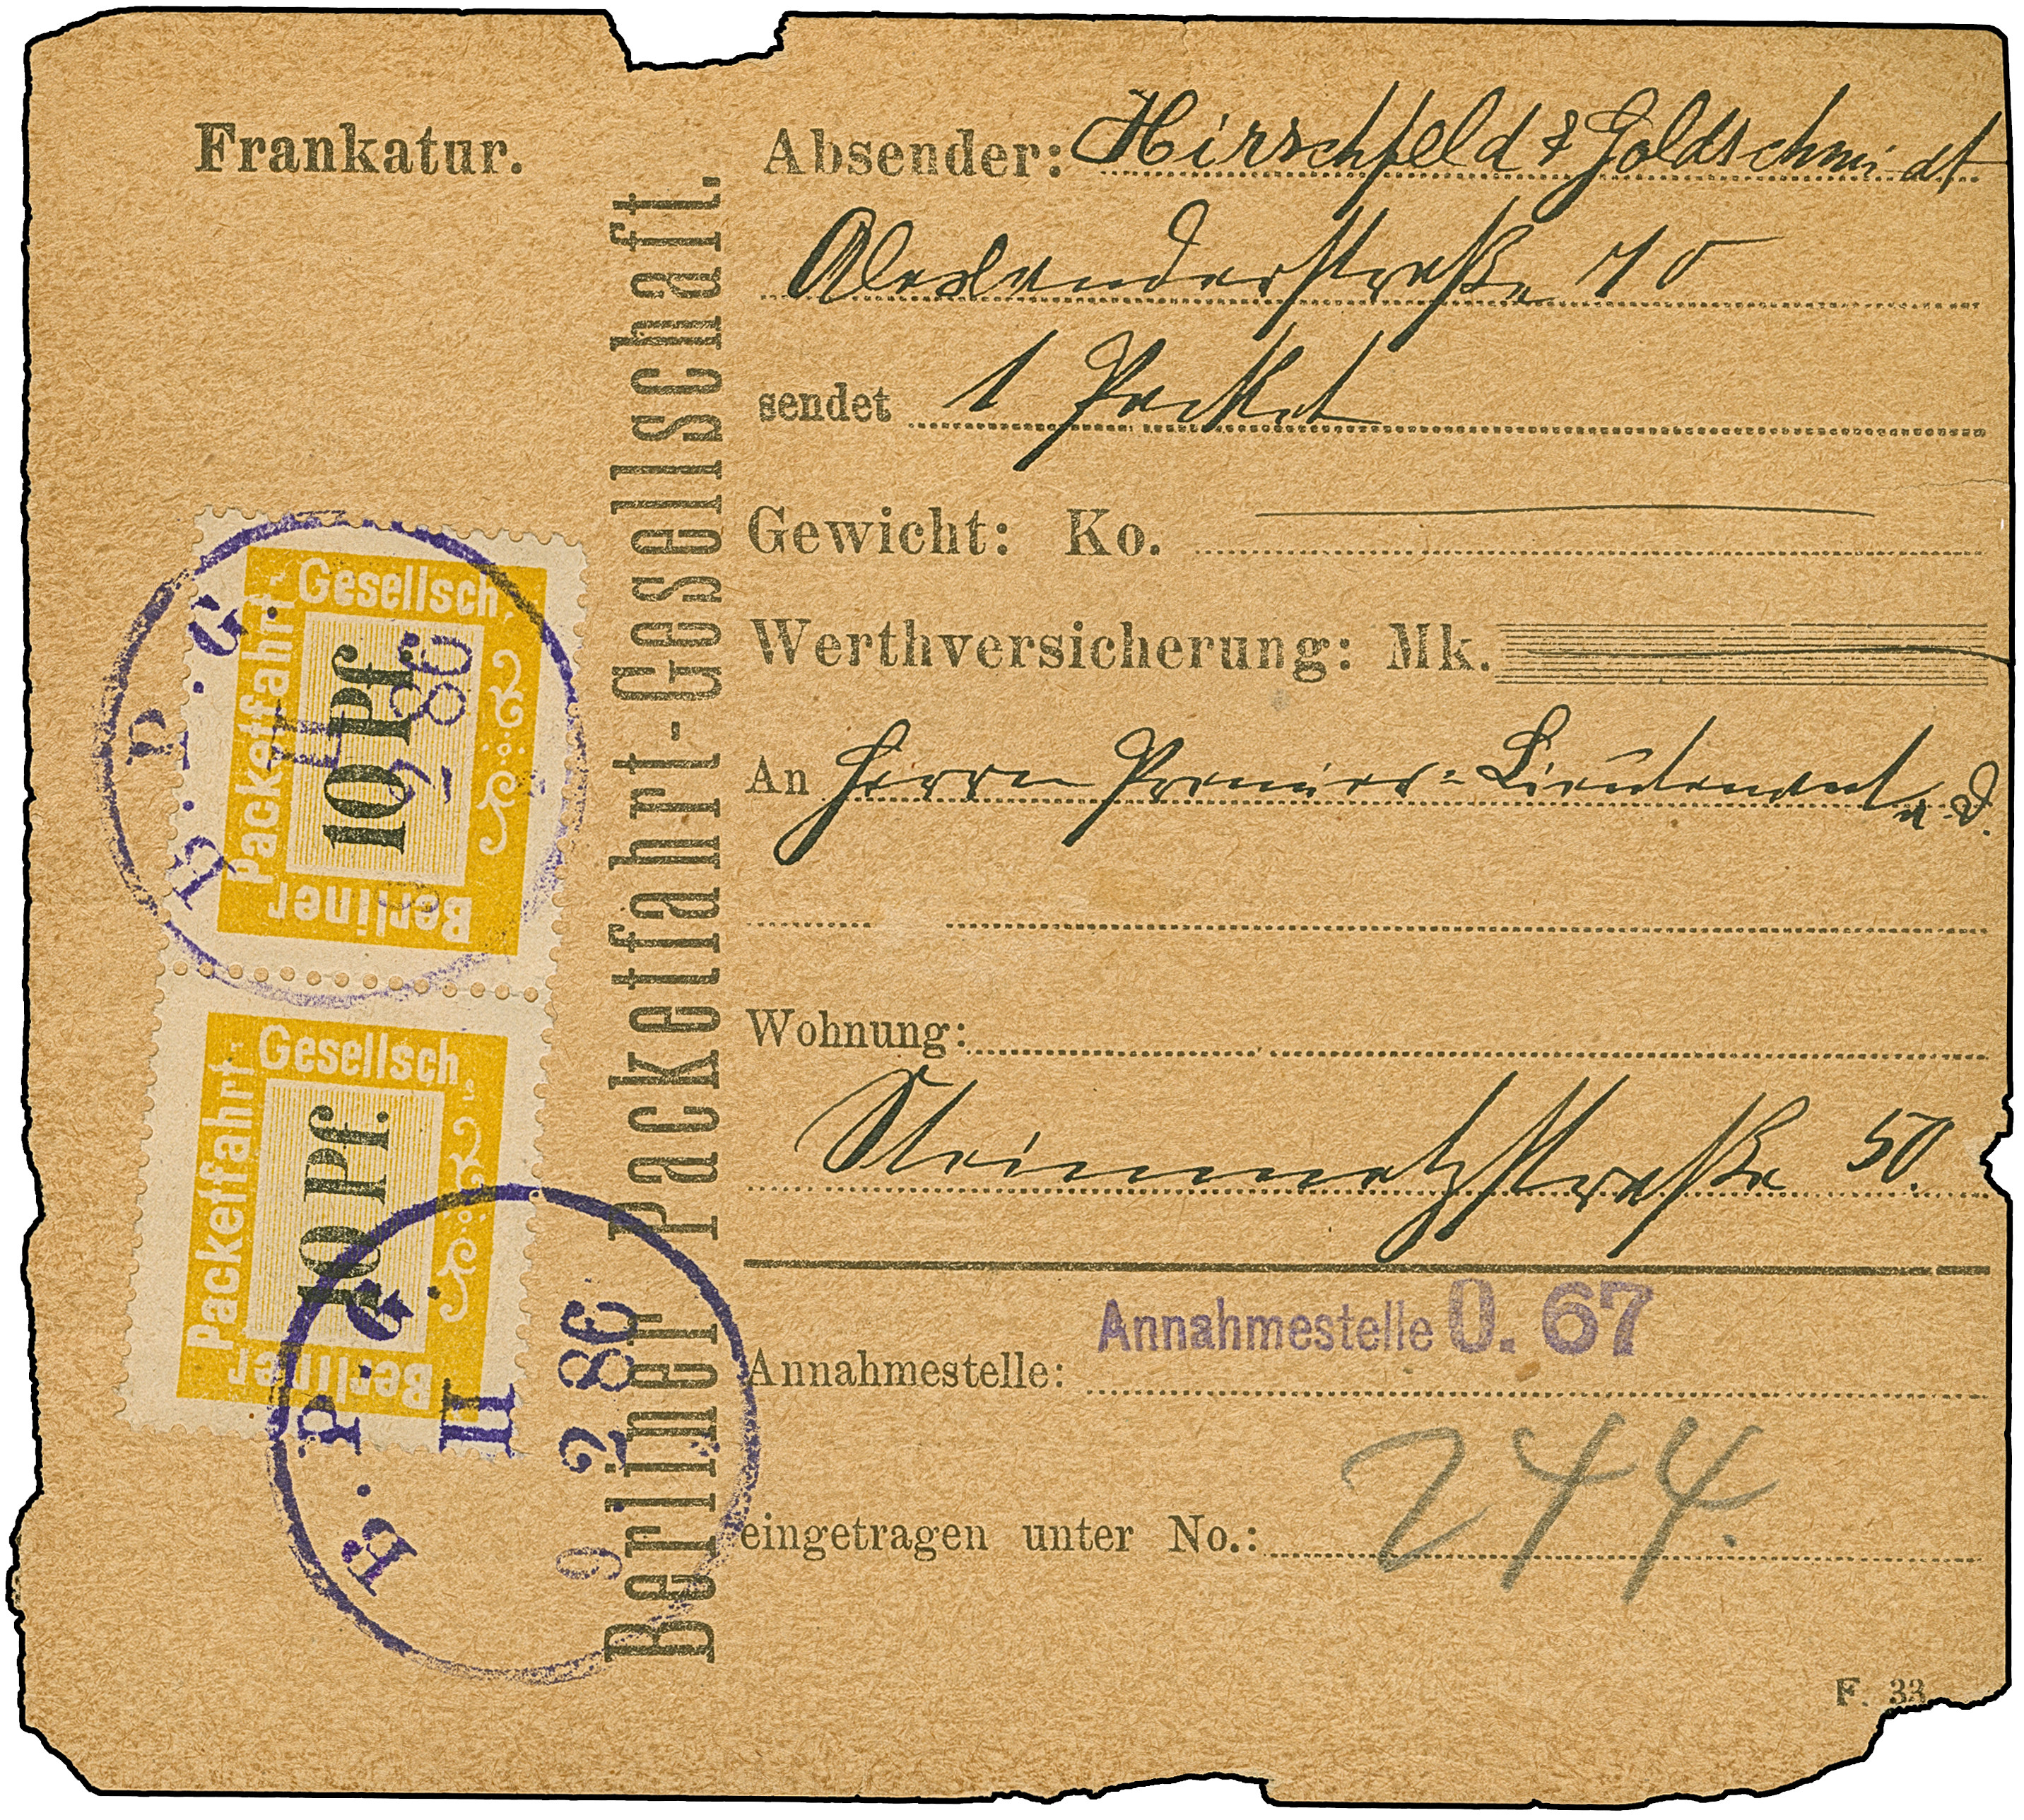 Frankatur.
Absender: Hirschfeld & Goldschmidt
Alexanderstraße 70
sendet 1 Packet
Gewicht: Ko.
Werthversicherung: Mk.
An Herrn Premier-Lieutenant a.d.
Wohnung:
Steinmetzstraße 50.
Annahmestelle: Annahmestelle O. 67
eingetragen unter No.: 244.
F. 33
Berliner Packetfahrt-Gesellschaft.
Berliner Packetfahrt-Gesellsch.
10 Pf.
B. P. G.
2 86
Berliner Packetfahrt-Gesellsch.
10 Pf.
B. P. G.
II
9 2 86